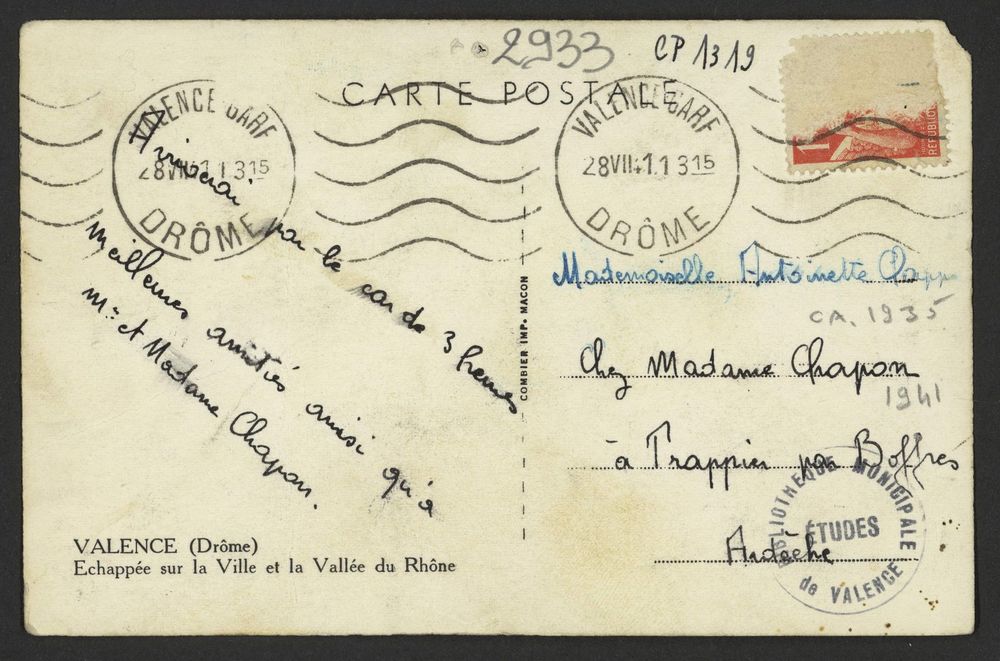 2933
CP 1319
CARTE POSTALE
VALENCE GARE
28 VII 41 13 15
DRÔME
VALENCE GARE
28 VII 41 13 15
DRÔME
1
REPUBLIQUE
Arriverai par le car de 3 heures
Meilleures amitiés ainsi qu'à
Mr et Madame Chapon.
Mademoiselle Antoinette
CA. 1935
Chez Madame Chapon
1941
à Trappier par Boffres
Ardèche
BIBLIOTHEQUE MUNICIPALE
ÉTUDES
de VALENCE
COMBIER IMP. MACON
VALENCE (Drôme)
Echappée sur la Ville et la Vallée du Rhône